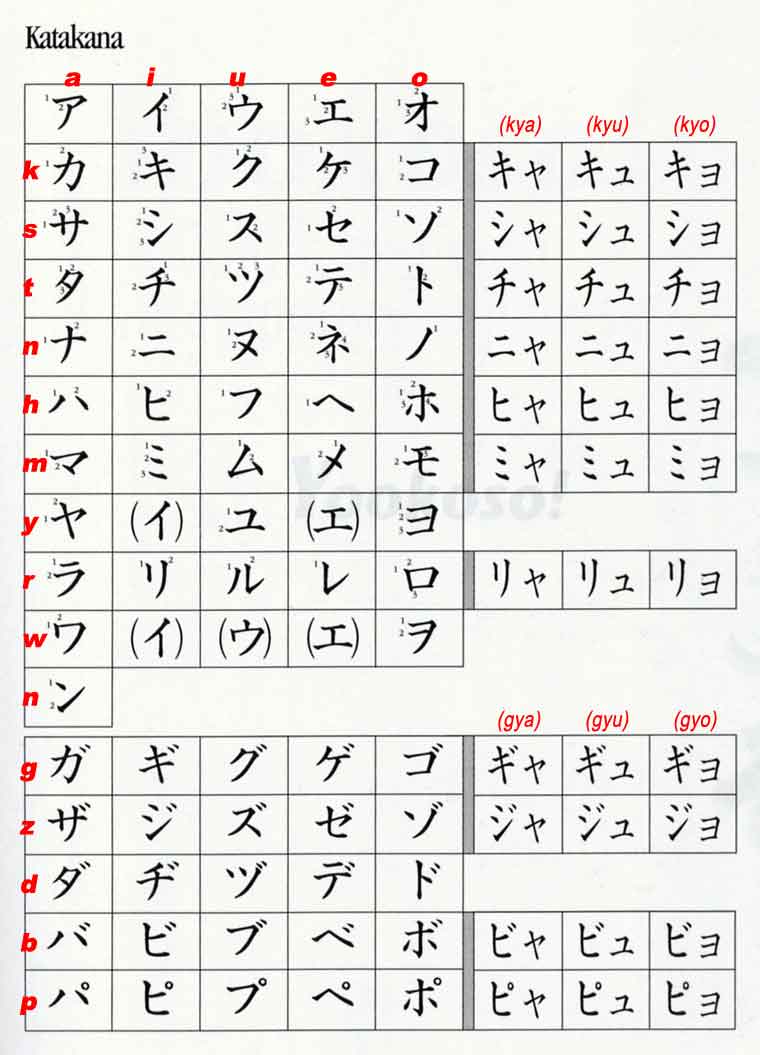 Katakana
a i u e o
ア イ ウ エ オ (kya) (kyu) (kyo)
k カ キ ク ケ コ キャ キュ キョ
s サ シ ス セ ソ シャ シュ ショ
t タ チ ツ テ ト チャ チュ チョ
n ナ ニ ヌ ネ ノ ニャ ニュ ニョ
h ハ ヒ フ ヘ ホ ヒャ ヒュ ヒョ
m マ ミ ム メ モ ミャ ミュ ミョ
Yookoso!
y ヤ (イ) ユ (エ) ヨ
r ラ リ ル レ ロ リャ リュ リョ
w ワ (イ) (ウ) (エ) ヲ
n ン
(gya) (gyu) (gyo)
g ガ ギ グ ゲ ゴ ギャ ギュ ギョ
z ザ ジ ズ ゼ ゾ ジャ ジュ ジョ
d ダ ヂ ヅ デ ド
b バ ビ ブ ベ ボ ビャ ビュ ビョ
p パ ピ プ ペ ポ ピャ ピュ ピョ